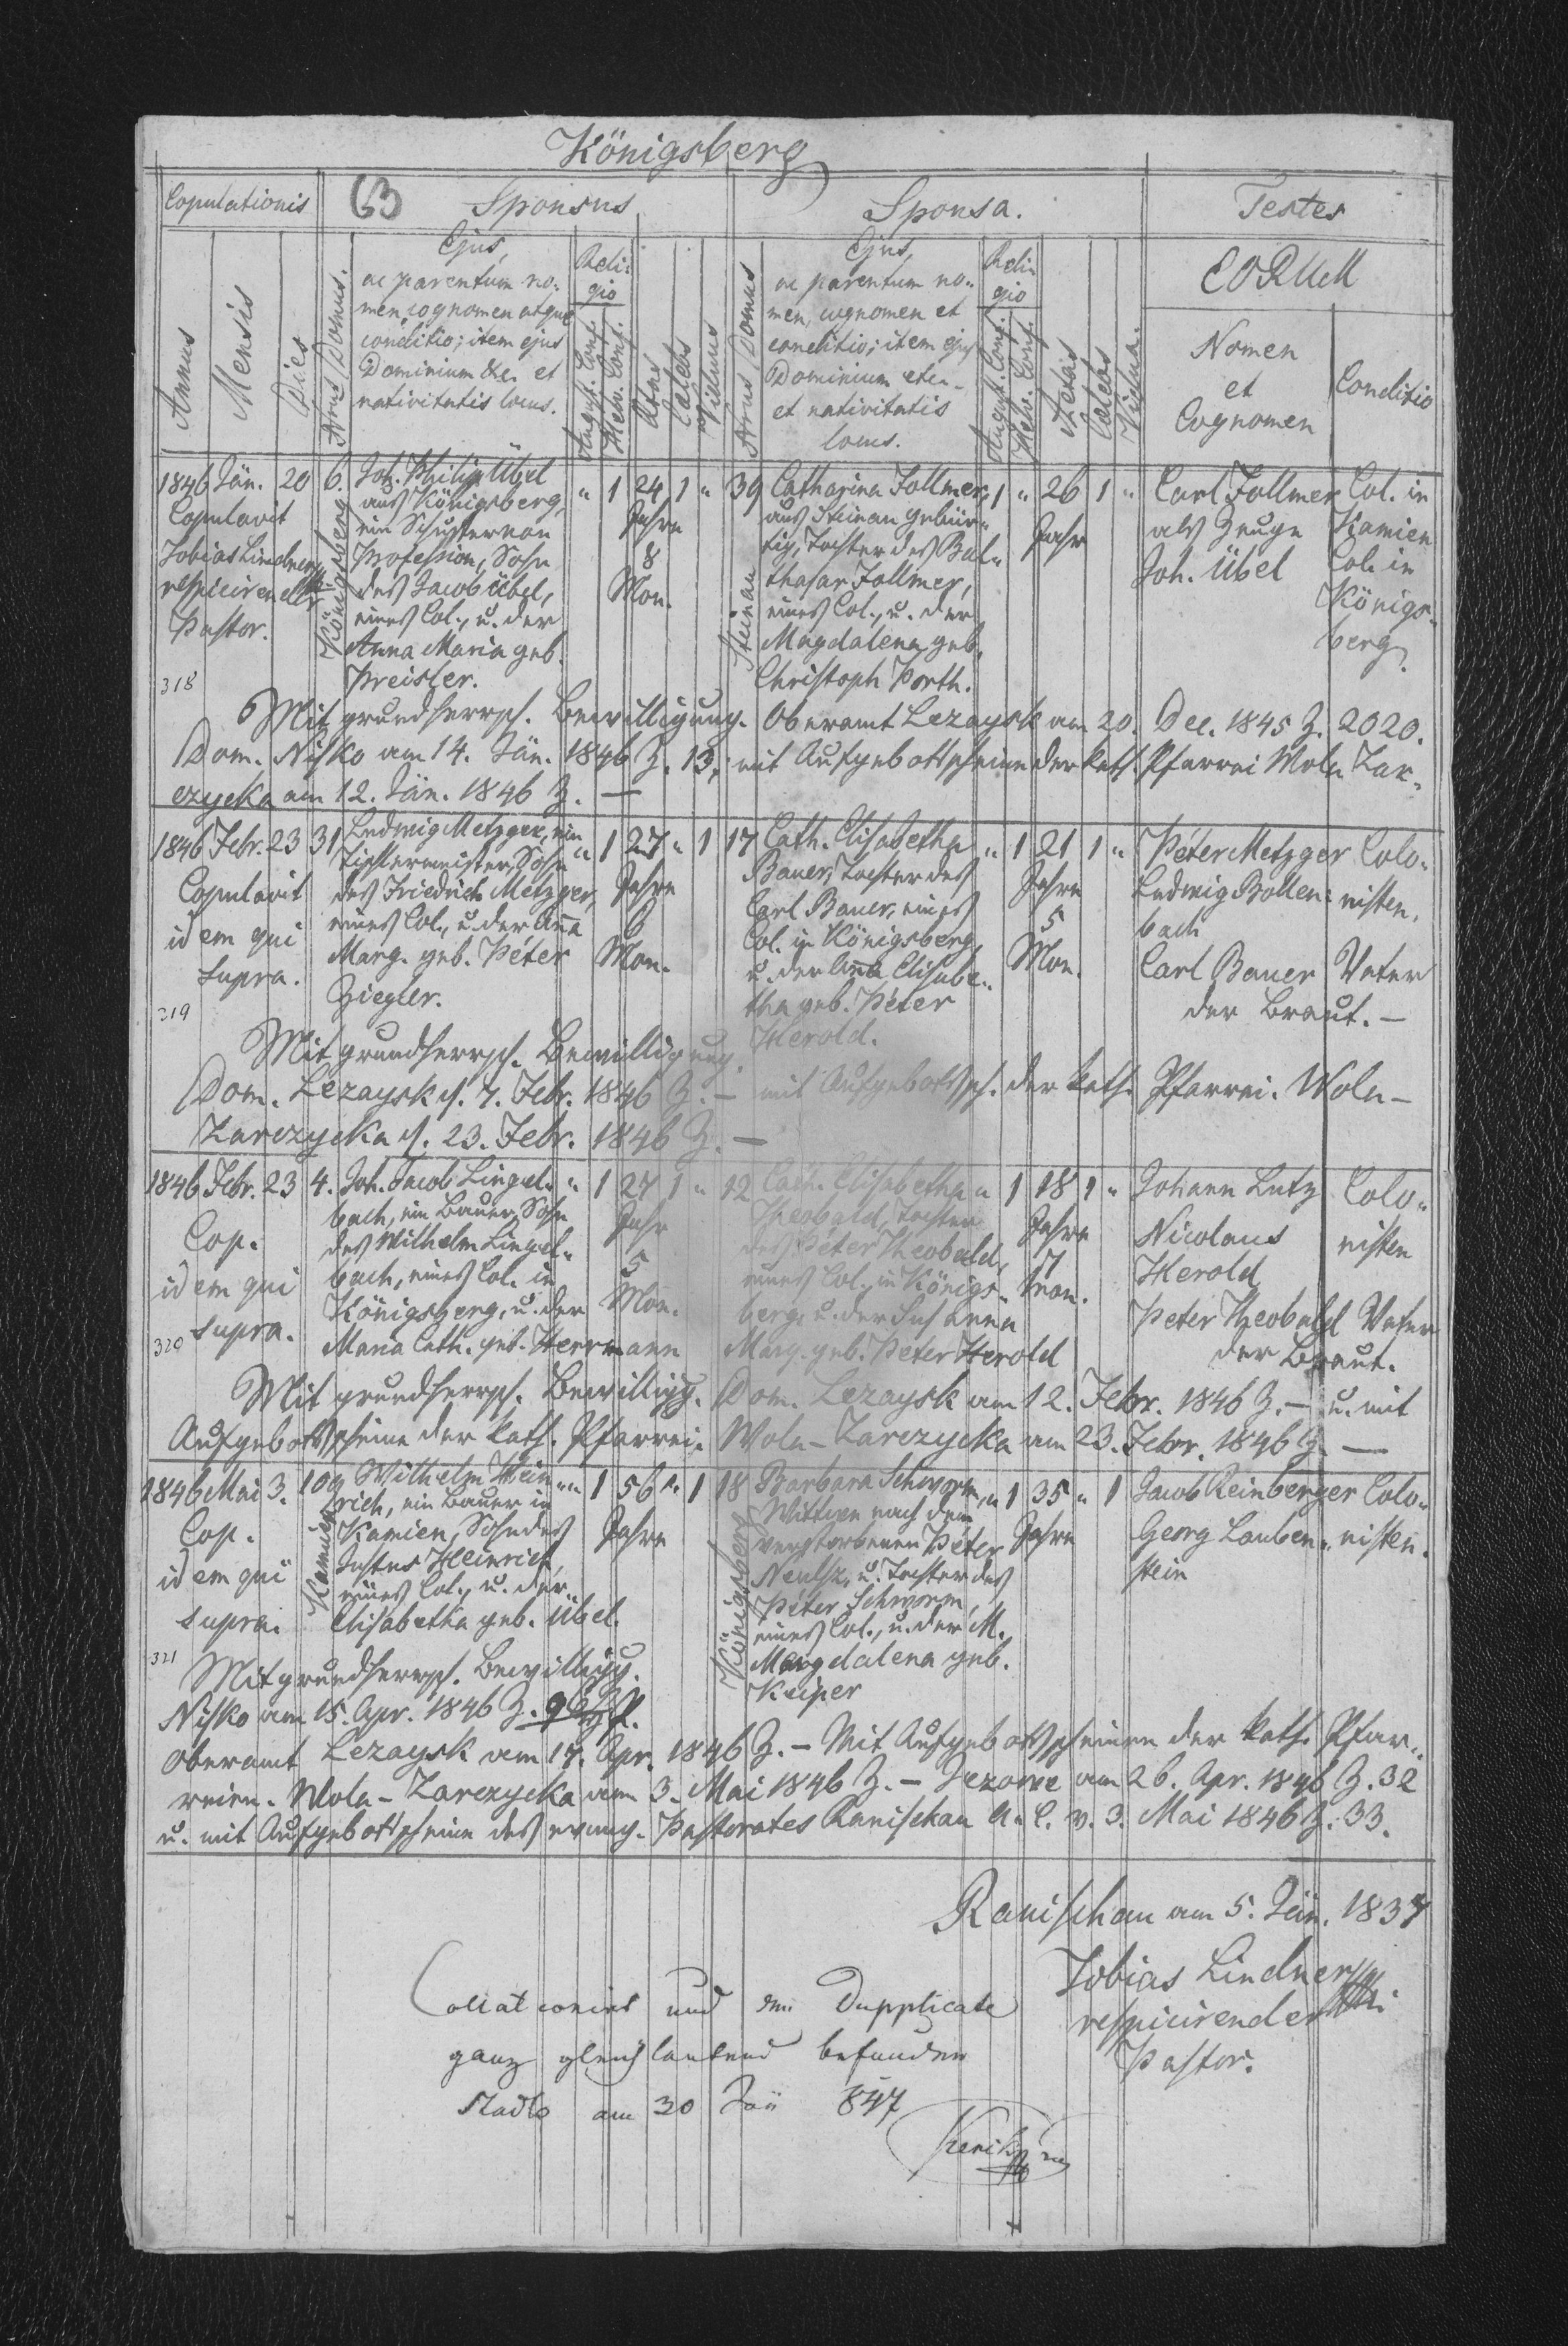 Königsberg
Copulationis
63
Sponsus
Sponsa.
Testes
Annus
Mensis
Dies
Nrus Domus.
Ejus,
ac parentum no-
men, cognomen atque
conditio; item ejus
Dominium etc. et
nativitatis locus.
Reli-
gio
August. Conf.
Helv. Conf.
Aetas
Caelebs
Viduus
Nrus Domus
Ejus,
ac parentum no-
men, cognomen et
conditio; item ejus
Dominium etc.
et nativitatis
locus.
Reli-
gio
August. Conf.
Helv. Conf.
Aetas
Caelebs
Vidua.
EORUM
Nomen
et
Cognomen
Conditio
1846 Jän. 20
Copulavit
Tobias Lindner
respicirender
Pastor.
318
6.
Königsberg
Joh. Philip Übel
aus Königsberg,
ein Schuster von
Profession, Sohn
des Jacob Übel,
eines Col., u. der
Anna Maria geb.
Preisler.
" 1 24 1 "
Jahre
8
Mon.
39
Steinau
Catharina Follmer,
aus Steinau gebür-
tig, Tochter des Bal-
thasar Follmer,
eines Col., u. der
Magdalena geb.
Christoph Porth.
1 " 26 1 "
Jahr
Carl Follmer
als Zeuge
Joh. Übel
Col. in
Kamien
Col. in
Königs-
berg.
Mit grundherrsch. Bewilligung. Oberamt Lezaysk am 20. Dec. 1845 Z. 2020.
Dom. Nisko am 14. Jän. 1846 Z. 13; mit Aufgebottscheine der kath. Pfarrei Wola Zar-
czycka am 12. Jän. 1846 Z. —
1846 Febr. 23
Copulavit
idem qui
supra.
319
31
Ludwig Metzger, ein
Tischlermeister, Sohn
des Friedrich Metzger,
eines Col., u. der Anna
Marg. geb. Péter
Ziegler.
" 1 27 " 1
Jahre
6
Mon.
17
Cath. Elisabetha
Bauer, Tochter des
Carl Bauer, eines
Col. in Königsberg,
u. der Anna Elisabe-
tha geb. Péter
Herold.
" 1 21 1 "
Jahre
5
Mon.
Péter Metzger
Ludwig Bollen-
bach
Carl Bauer Vater
der Braut. —
Colo-
nisten.
Mit grundherrsch. Bewilligung.
Dom. Lezaysk d. 7. Febr. 1846 Z. — mit Aufgebottsch. der kath. Pfarrei. Wola-
Zarczycka d. 23. Febr. 1846 Z. —
1846 Febr. 23
Cop.
idem qui
supra.
320
4.
Joh. Jacob Lingel-
bach, ein Bauer, Sohn
des Wilhelm Lingel-
bach, eines Col. in
Königsberg, u. der
Maria Cath. geb. Herrmann
" 1 27 1 "
Jahr
5
Mon.
12
Cath. Elisabetha
Theobald, Tochter
des Péter Theobald,
eines Col. in Königs-
berg, u. der Susanna
Marg. geb. Péter Herold
" 1 18 1 "
Jahre
7
Mon.
Johann Lutz
Nicolaus
Herold
Peter Theobald Vater
der Braut.
Colo-
nisten
Mit grundherrsch. Bewilligg. Dom. Lezaysk am 12. Febr. 1846 Z. — u. mit
Aufgebottscheine der kath. Pfarrei. Wola-Zarczycka am 23. Febr. 1846 Z. —
1846 Mai 3.
Cop.
idem qui
supra.
321
109
Kamien
Wilhelm Hein-
rich, ein Bauer in
Kamien, Sohn des
Justus Heinrich,
eines Col., u. der
Elisabetha geb. Übel.
" 1 56 " 1
Jahre
18
Königsberg
Barbara Schworm,
Wittwe nach dem
verstorbenen Péter
u. Tochter des
Péter Schworm,
eines Col., u. der M.
Magdalena geb.
Keiper
" 1 35 " 1
Jahre
Jacob Reinberger
Georg Lauben-
stein
Colo-
nisten.
Mit grundherrsch. Bewilligg.
Nisko am 15. Apr. 1846 Z.
Oberamt Lezaysk am 17. Apr. 1846 Z. — Mit Aufgebottscheinen der kath. Pfar-
reien. Wola-Zarczycka am 3. Mai 1846 Z. — Jezowe am 26. Apr. 1846 Z. 32
u. mit Aufgebottscheine des evang. Pastorates Ranischau A. C. v. 3. Mai 1846 Z. 33.
Ranischau am 5. Jän. 1837
Tobias Lindner
respicirender
Pastor.
Collationirt und dem Dupplicate
ganz gleichlautend befunden
Stadlo am 30 847